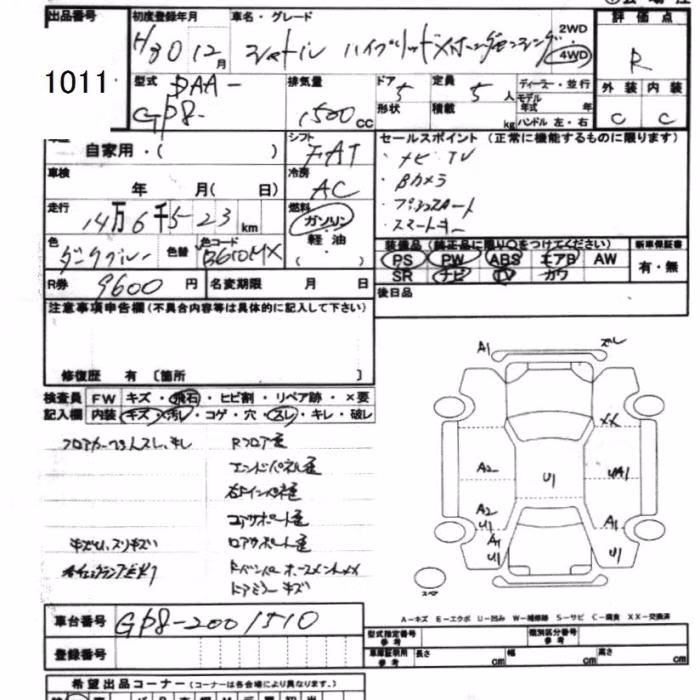 出品番号 初度登録年月 車名・グレード 評価点
1011 H30 12月 シャトル ハイブリッドXホンダセンシング 2WD 4WD R
型式 DAA-GP8- 排気量 1500cc ドア 5 定員 5人 ディーラー・並行 外装 内装
形状 積載 kg モデル年式 年 ハンドル 左・右 C C
自家用・( ) シフト FAT セールスポイント (正常に機能するものに限ります)
車検 年 月( 日) 冷房 AC ・ナビ TV
・Bカメラ
走行 14万6千523km 燃料 ガソリン 軽油 ・プッシュスタート
・スマートキー
色 ダークブルー 色替 色コード B610MX ( )
装備品(純正品に限り○をつけてください) 新車保証書
PS PW ABS エアB AW 有・無
SR ナビ TV カワ
R券 9600円 名変期限 月 日 後日品
注意事項申告欄(不具合内容等は具体的に記入して下さい)
修復歴 有 〔箇所 〕
検査員 FW キズ・飛石・ヒビ割・リペア跡・×要
記入欄 内装 キズ・汚レ・コゲ・穴・スレ・キレ・破レ
Rフロア歪
エンドパネル歪
コアサポート歪
キズU、スリキズ ロアサポート歪
ドアミラー キズ
A1 ズレ
XX
A2 U1 UA1
A2 U1 A1
A1 U1 U1
スペア
A-キズ E-エクボ U-凹み W-補修跡 S-サビ C-腐食 XX-交換済
車台番号 GP8-2001510
型式指定番号 参考 類別区分番号 参考
登録番号 車庫証明用 参考 長さ cm 幅 cm 高さ cm
希望出品コーナー (コーナーは各会場により異なります。)